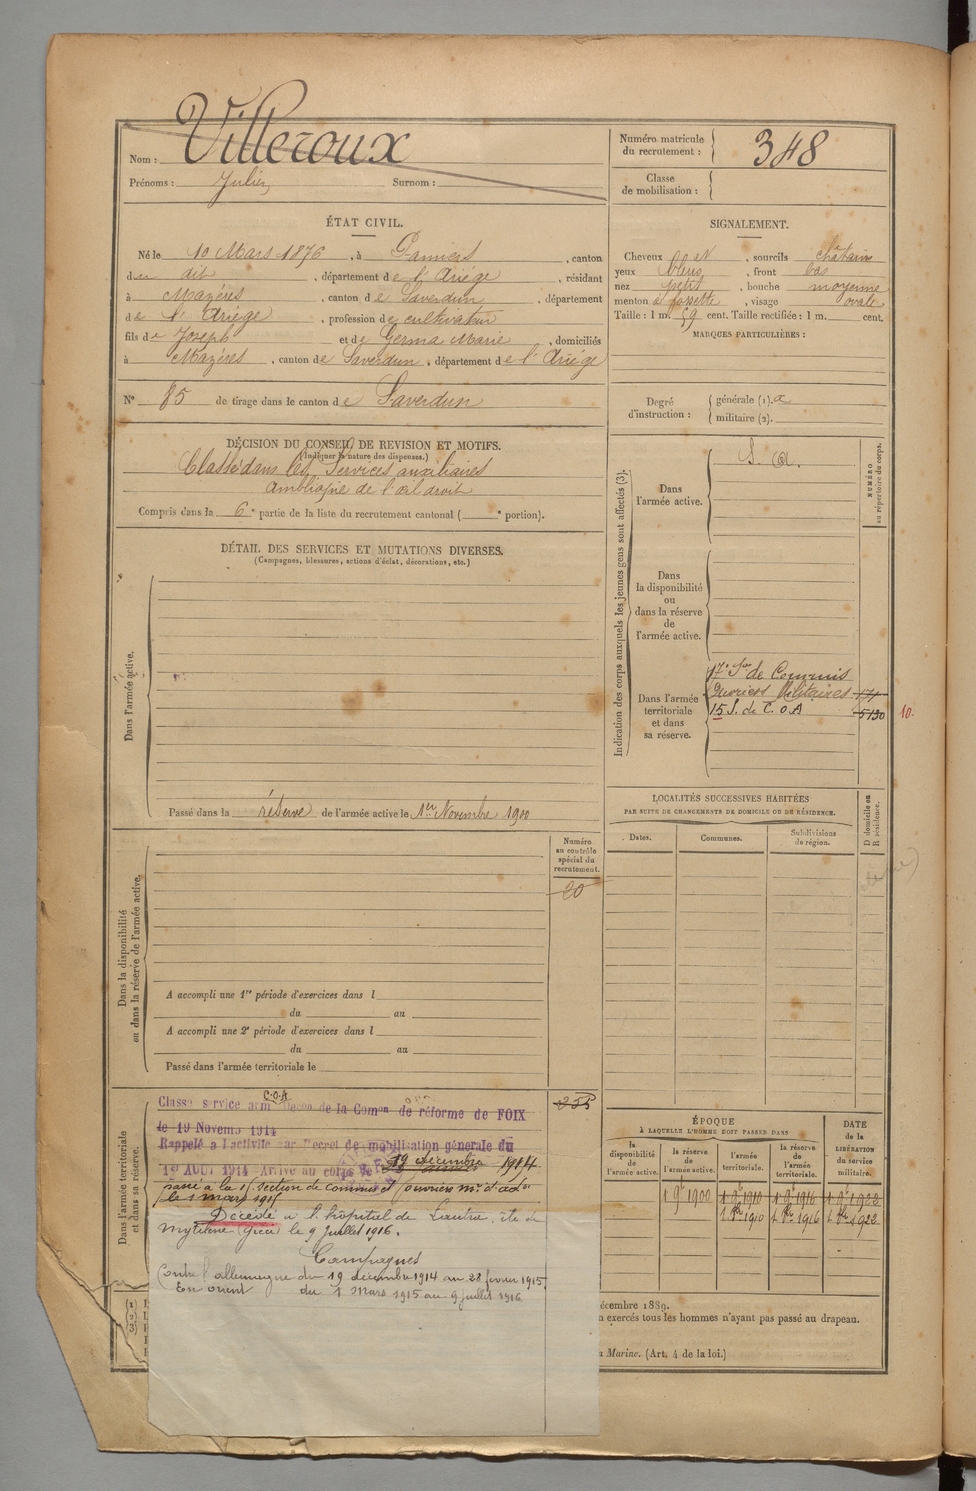 Nom : Villeroux
Prénoms : Julien Surnom :
Numéro matricule du recrutement : 348
Classe de mobilisation :
ÉTAT CIVIL.
Né le 10 Mars 1876, à Pamiers, canton
du dit, département de l'Ariège, résidant
à Mazères, canton de Saverdun, département
de l'Ariège, profession de cultivateur
fils de Joseph et de Germa Marie, domiciliés
à Mazères, canton de Saverdun, département de l'Ariège
N° 85 de tirage dans le canton de Saverdun
SIGNALEMENT.
Cheveux sourcils châtains
yeux bleus, front bas
nez petit, bouche moyenne
menton à fossette, visage ovale
Taille : 1 m. 59 cent. Taille rectifiée : 1 m. cent.
MARQUES PARTICULIÈRES :
Degré d'instruction : générale (1). 2
militaire (2).
DÉCISION DU CONSEIL DE REVISION ET MOTIFS.
(Indiquer la nature des dispenses.)
Classé dans les Services auxiliaires
Ambliopie de l'œil droit
Compris dans la 6e partie de la liste du recrutement cantonal ( e portion).
DÉTAIL DES SERVICES ET MUTATIONS DIVERSES.
(Campagnes, blessures, actions d'éclat, décorations, etc.)
Dans l'armée active.
Passé dans la réserve de l'armée active le 1er Novembre 1900
Indication des corps auxquels les jeunes gens sont affectés (3).
NUMÉRO au répertoire du corps.
Dans l'armée active.
S. a.
Dans la disponibilité ou dans la réserve de l'armée active.
Dans l'armée territoriale et dans sa réserve.
17e Son de Commis
Ouvriers Militaires
15 S. de C. O. A 5130
10.
LOCALITÉS SUCCESSIVES HABITÉES
PAR SUITE DE CHANGEMENTS DE DOMICILE OU DE RÉSIDENCE.
Dates. Communes. Subdivisions de région. D domicile ou R résidence.
Dans la disponibilité ou dans la réserve de l'armée active.
Numéro au contrôle spécial du recrutement.
20
A accompli une 1re période d'exercices dans l
du au
A accompli une 2e période d'exercices dans l
du au
Passé dans l'armée territoriale le
Dans l'armée territoriale et dans sa réserve.
C.O.A
Classé service armé Décon de la Comon de réforme de FOIX
le 19 Novembre 1914
Rappelé à l'activité par Décret de mobilisation générale du
1er AOUT 1914 Arrivé au corps le 19 décembre 1914
passé à la 15 section de commis et ouvriers
le 1 mars 1915
Décédé à l'hôpital de île de
Mytilène le 9 juillet 1916.
Campagnes
Contre l'allemagne du 19 décembre 1914 au 28 fevrier 1915
En orient du 1 mars 1915 au 9 juillet 1916
ÉPOQUE
À LAQUELLE L'HOMME DOIT PASSER DANS
la disponibilité de l'armée active. la réserve de l'armée active. l'armée territoriale. la réserve de l'armée territoriale.
DATE de la LIBÉRATION du service militaire.
1 9bre 1900 1 9bre 1910 1 9bre 1916
1 8bre 1910 1 8bre 1916
écembre 1889.
exercés tous les hommes n'ayant pas passé au drapeau.
Marine. (Art. 4 de la loi.)